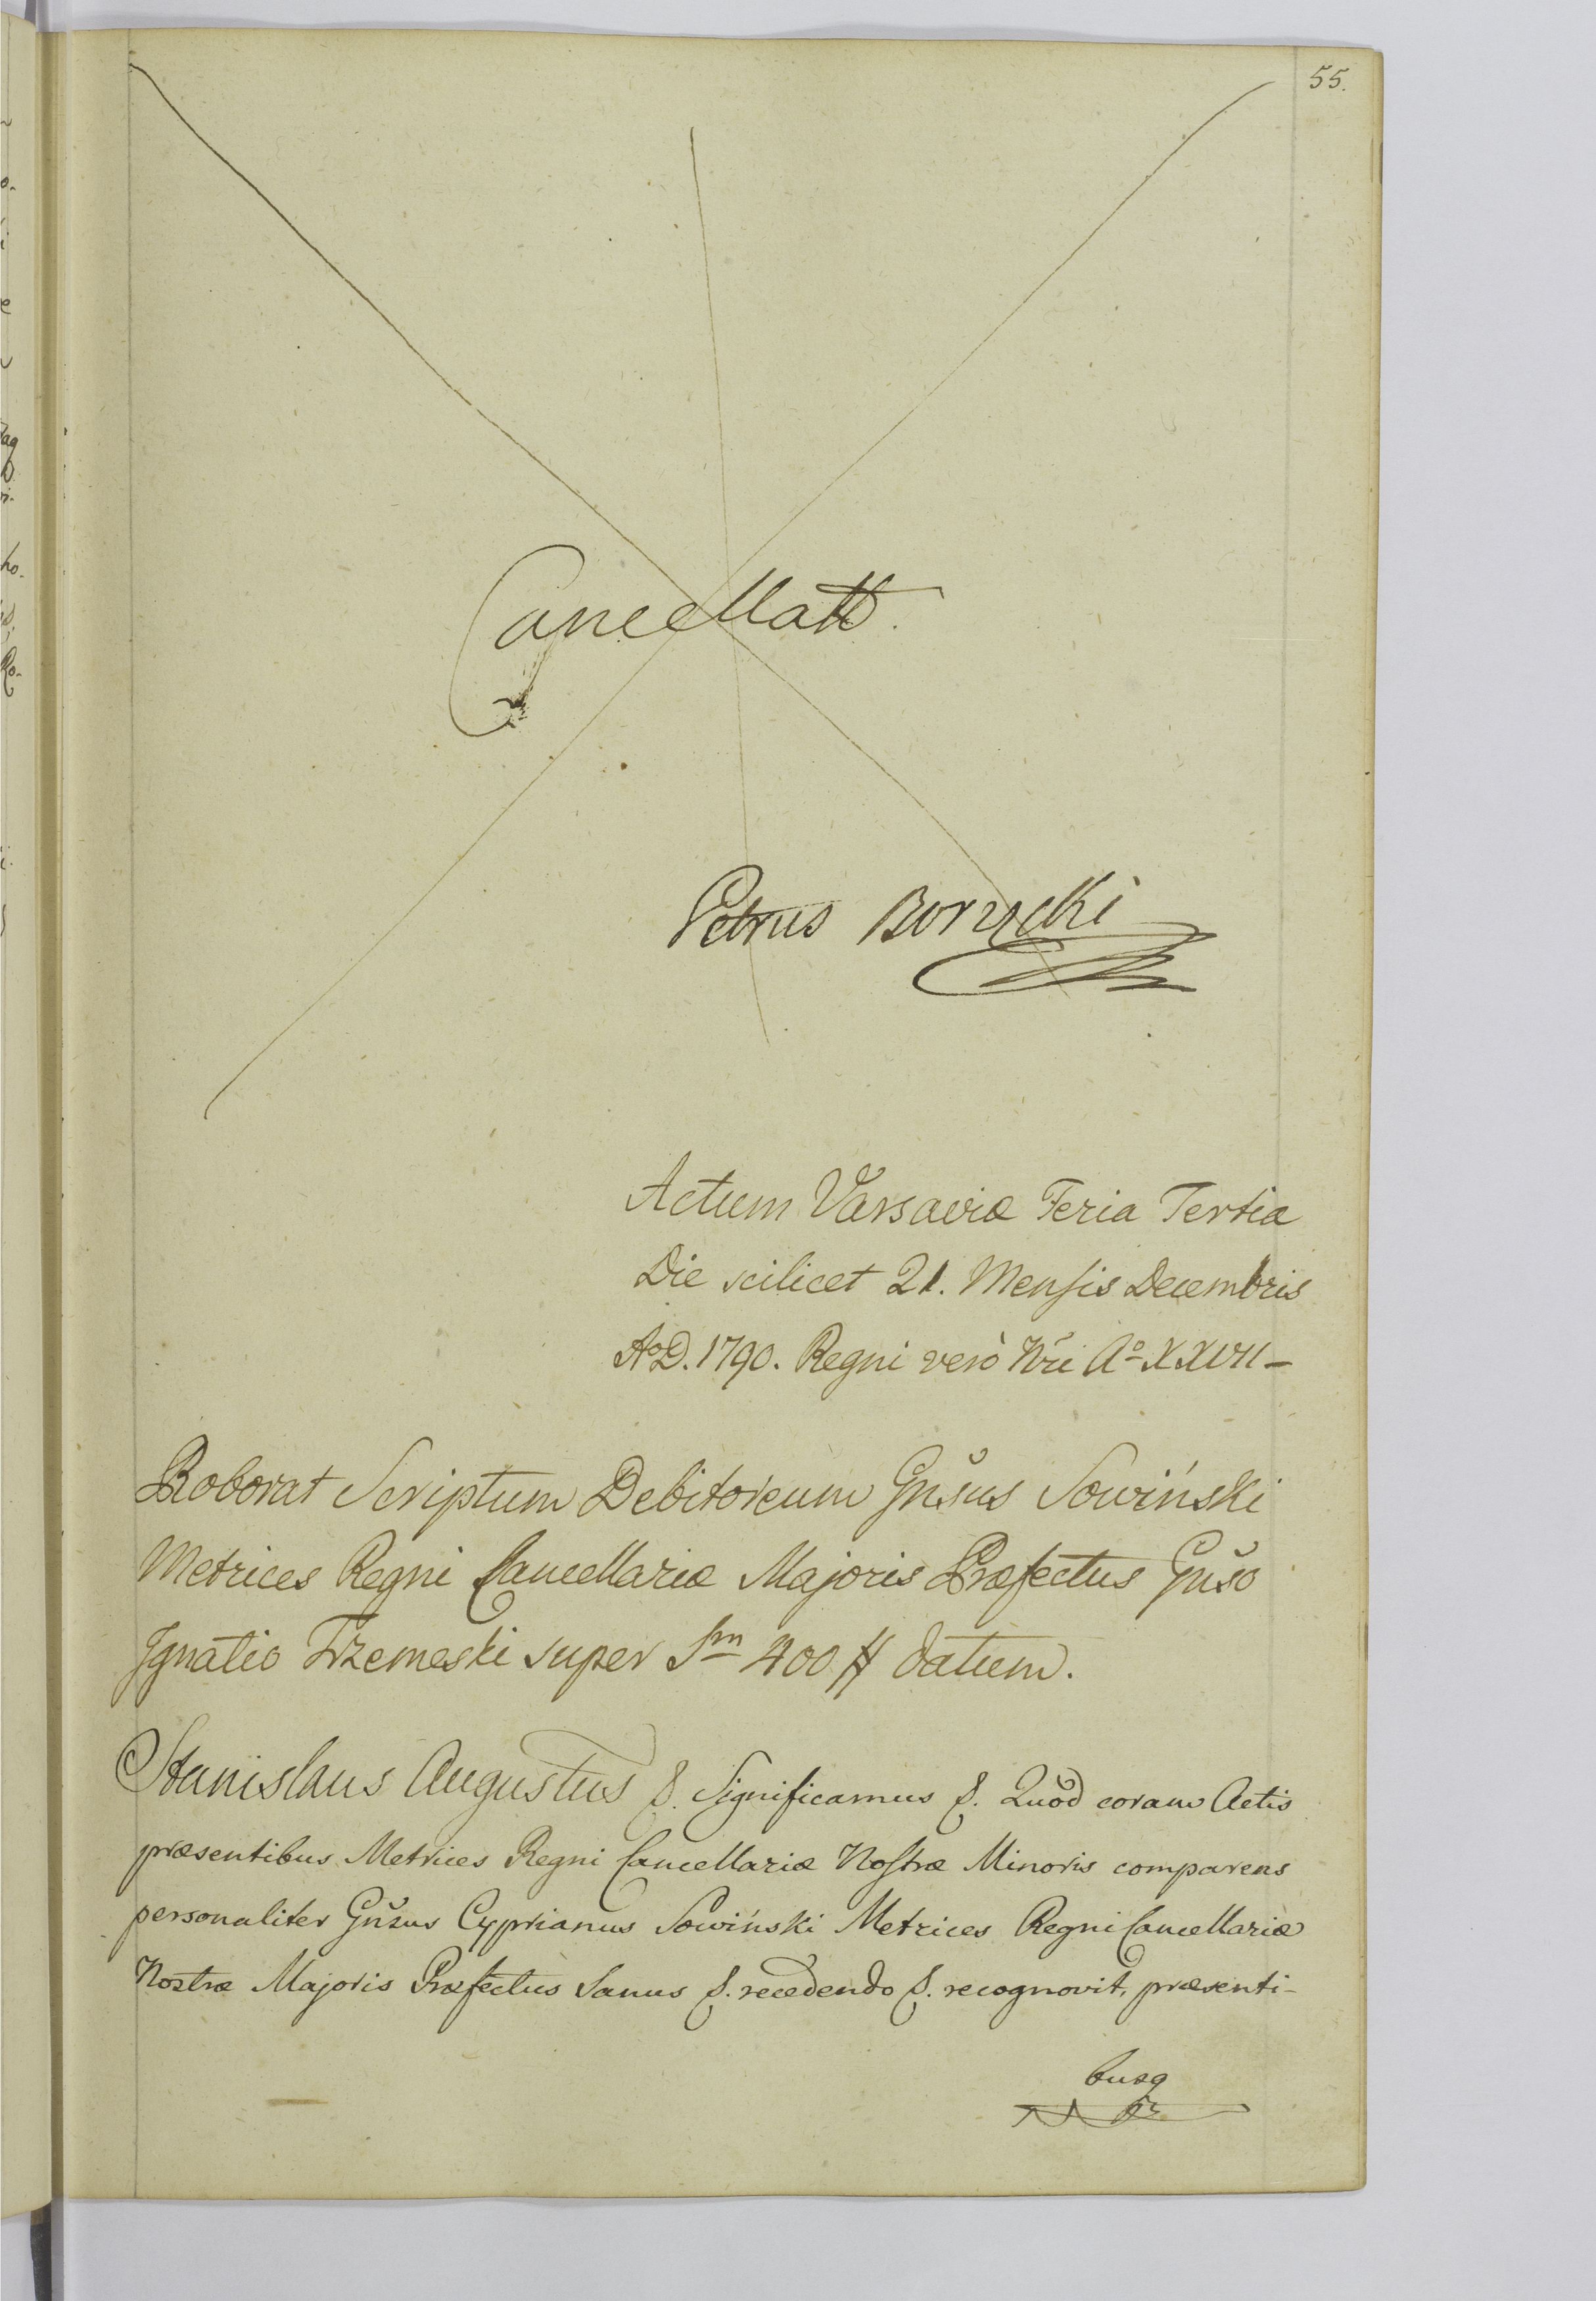 55.
Cancellatt.
Petrus Borzęcki
Actum Varsaviæ Feria Tertia
Die scilicet 21. Mensis Decembris
AoD. 1790. Regni verò Nri Ao XXVII-
Roborat Scriptum Debitoreum Gnsus Sowiński
Metrices Regni Cancellariæ Majoris Præfectus Gnso
Ignatio Trzemeski super Sm 400 # datum.
Stanislaus Augustus &. Significamus &. Quod coram Actis
præsentibus Metrices Regni Cancellariæ Nostræ Minoris comparens
personaliter Gnsus Cyprianus Sowiński Metrices Regni Cancellariæ
Nostræ Majoris Præfectus Sanus &. recedendo &. recognovit, præsenti-
busq